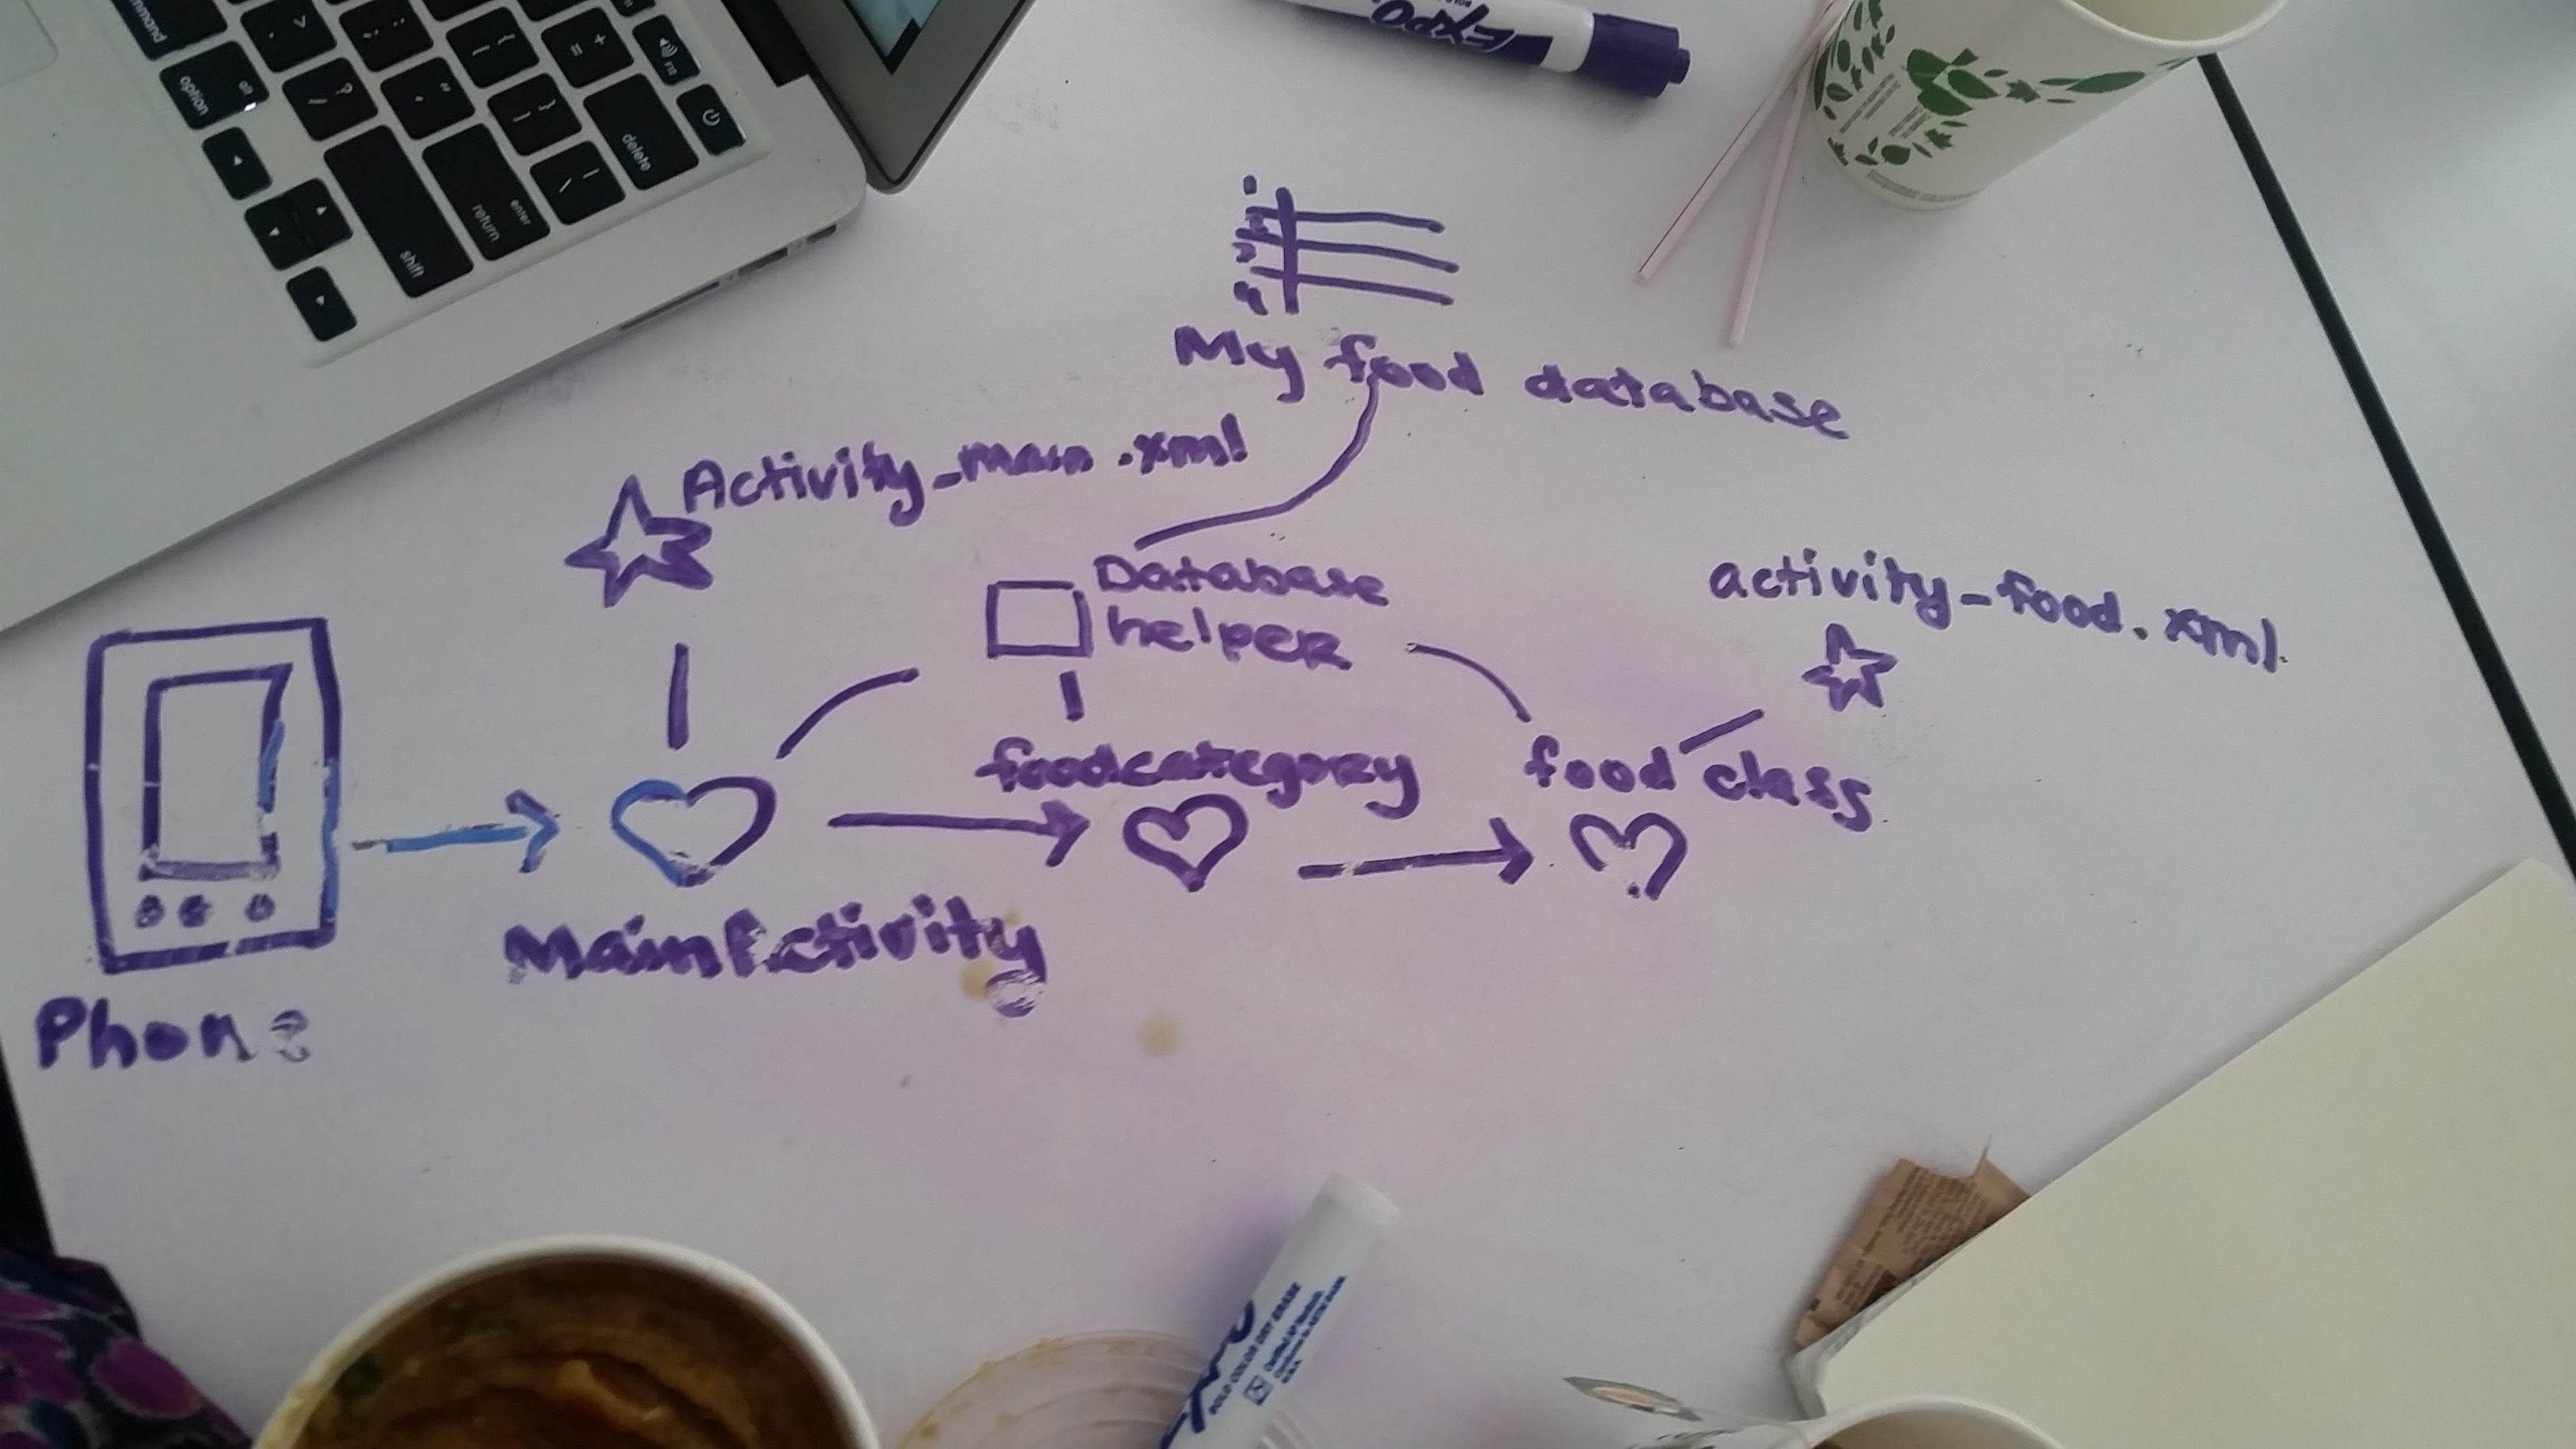 command
option
alt
delete
enter
return
shift
F12
EXPO
My food database
Activity_main.xml
Database
helper
activity-food.xml
foodcategory
food class
MainActivity
Phone
BOLD COLOR DRY ERASE